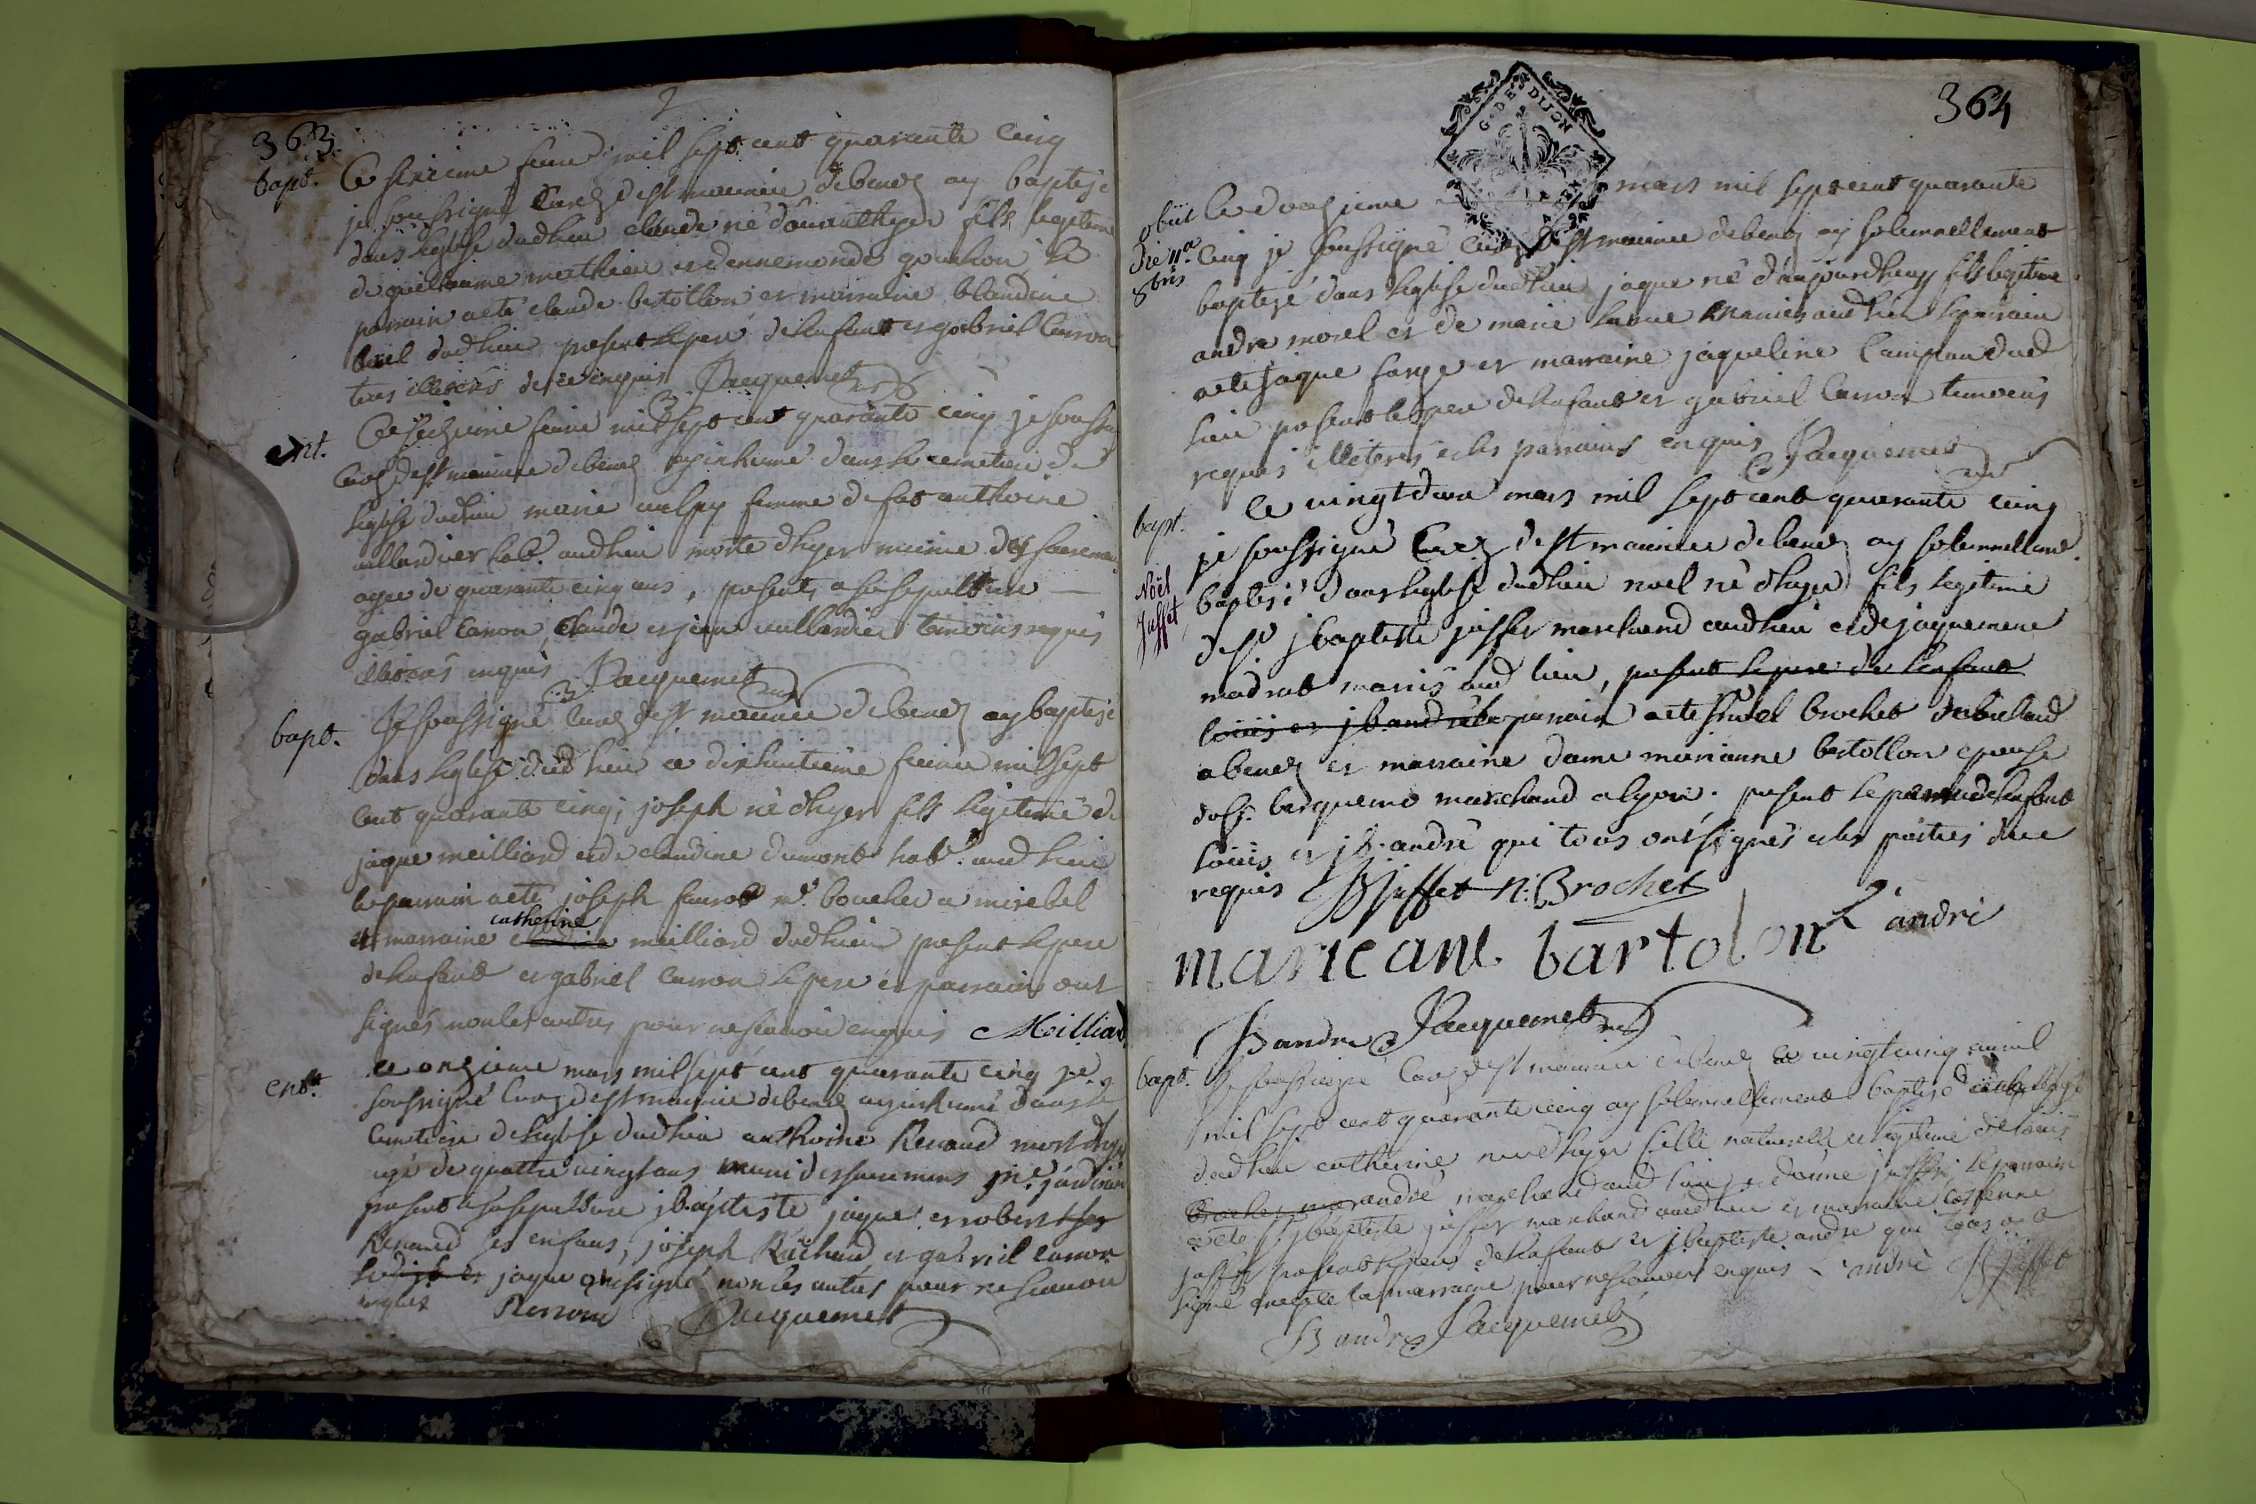 363.
2
bapt. Ce sixieme feuer mil sept cent quarante cinq
je soussigné Curez de st maurice de benez ay baptisé
dans leglise dud lieu claude né d'auanthyer fils legitime
de guillaume merthieu et dennemonde gonchon, le
parrain a eté claude bertollon et marraine blandine
buel dud lieu present le pere de lenfant et gabriel Carron
illiterés de ce enquis Jacquemet
ent. Ce seizieme feurier mil sept cent quarante cinq je soussig
Curez de st maurice de benez ay inhumé dans le cemetiere de
leglise dud lieu marie uulpy femme de fut anthoine
uullierdier hab. aud lieu morte d'hyer munie des sacremens
agee de quarante cinq ans, presents a sa sepulture
gabriel Carron, Claude et jean uullierdier temoins requis
illiterés enquis Jacquemet
bapt. Je soussigné Curez de st maurice de benez ay baptisé
dans leglise dud lieu ce dixhuitieme feurier mil sept
cent quarante cinq, joseph né d'hyer fils legitime de
jaque meilliard et de claudine dumont hab. aud lieu
le parrain a eté joseph faurot md. boucher a mirebel
et marraine catherine meilliard dud lieu present le pere
de lenfant et gabriel Carron le pere et parrain ont
signés non les autres pour ne scauoir enquis Meilliard
ent. Ce onzieme mars mil sept cent quarante cinq je
soussigné Curez de st maurice de benez ay inhumé dans le
Cemetiere de leglise dud lieu anthoine Renaud mort d'hyer
agé de quatre uingt ans muni des sacremens
present a sa sepulture jbaptiste jaque et robert
Renaud ses enfans, joseph Ruichard et gabriel Carron
jaque a signé non les autres pour ne scauoir
enquis Renaud Jacquemet
364
G. DE DIJON
obiit
die 11a
8bris
Ce douzieme mars mil sept cent quarante
Cinq je soussigné Curez de st maurice de benez ay solemnellement
baptisé dans leglise dud lieu jaque né d'aujourdhuy fils legitime
andre morel et de marie mariés aud lieu le parrain
a eté jaque farge et marraine jaqueline Campan dud
lieu present le pere de lenfant et gabriel Carron temoins
requis illiterés et les parrains enquis Jacquemet
bapt. Ce uingt deux mars mil sept cent quarante cinq
je soussigné Curez de st maurice de benez ay solemnellement
Noël
Juffet
baptisé dans leglise dud lieu noel né d'hyer fils legitime
de sr jbaptiste juffet marchand aud lieu et de jaquemene
madrat mariés aud lieu, present le pere de lenfant
louis et jb. andré le parrain a eté sr noel brochet
a benez et marraine dame marianne bertollon epouse
du sr. berquemo marchand a lyon. present le pere de lenfant
louis et jb. andré qui tous ont signés et les parties de ce
requis JB juffet N: Brochet
marieane bartolon L andré
JB andré Jacquemet
bapt. Je soussigné Curez de st maurice de benez ce uingt cinq auril
mil sept cent quarante cinq ay solemnellement baptisé dans leglise
dud lieu catherine née d'hyer fille naturelle et legitime de louis
andré marchand aud lieu et danne juffet, le parrain
a eté sr jbaptiste juffet marchand aud lieu et marraine
juffet present le pere de lenfant et jbaptiste andre qui tous ont
signé excepté la marraine pour ne scauoir enquis L andré JB juffet
JB andré Jacquemet